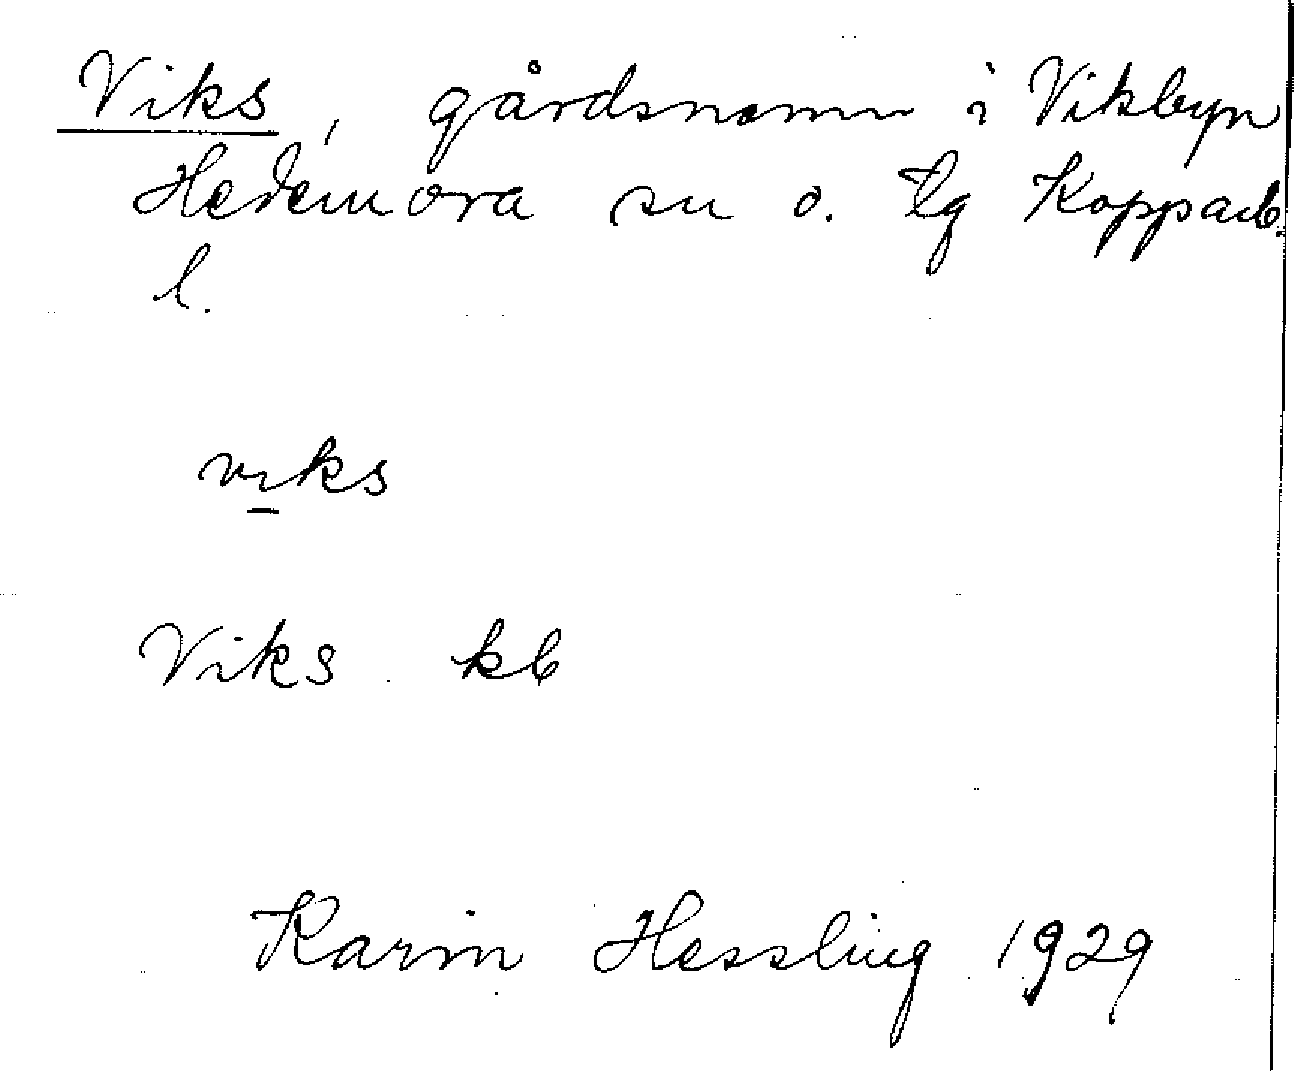 Viks, gårdsnamn i Vikbyn
Hedemora sn o. tg Kopparb.
l.
viks
Viks kb
Karin Hessling 1929